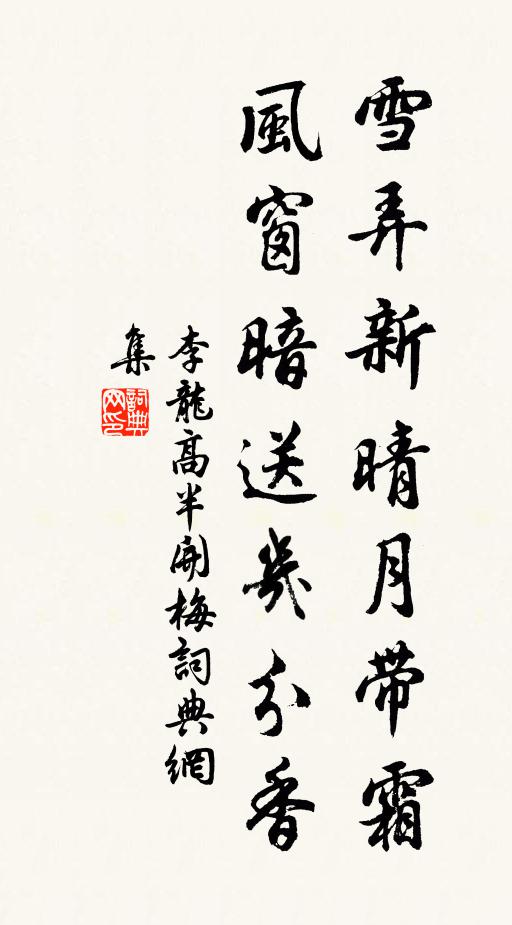 雪弄新晴月带霜
風窗暗送幾分香
李龍高半開梅詞典網
集
詞典
网印